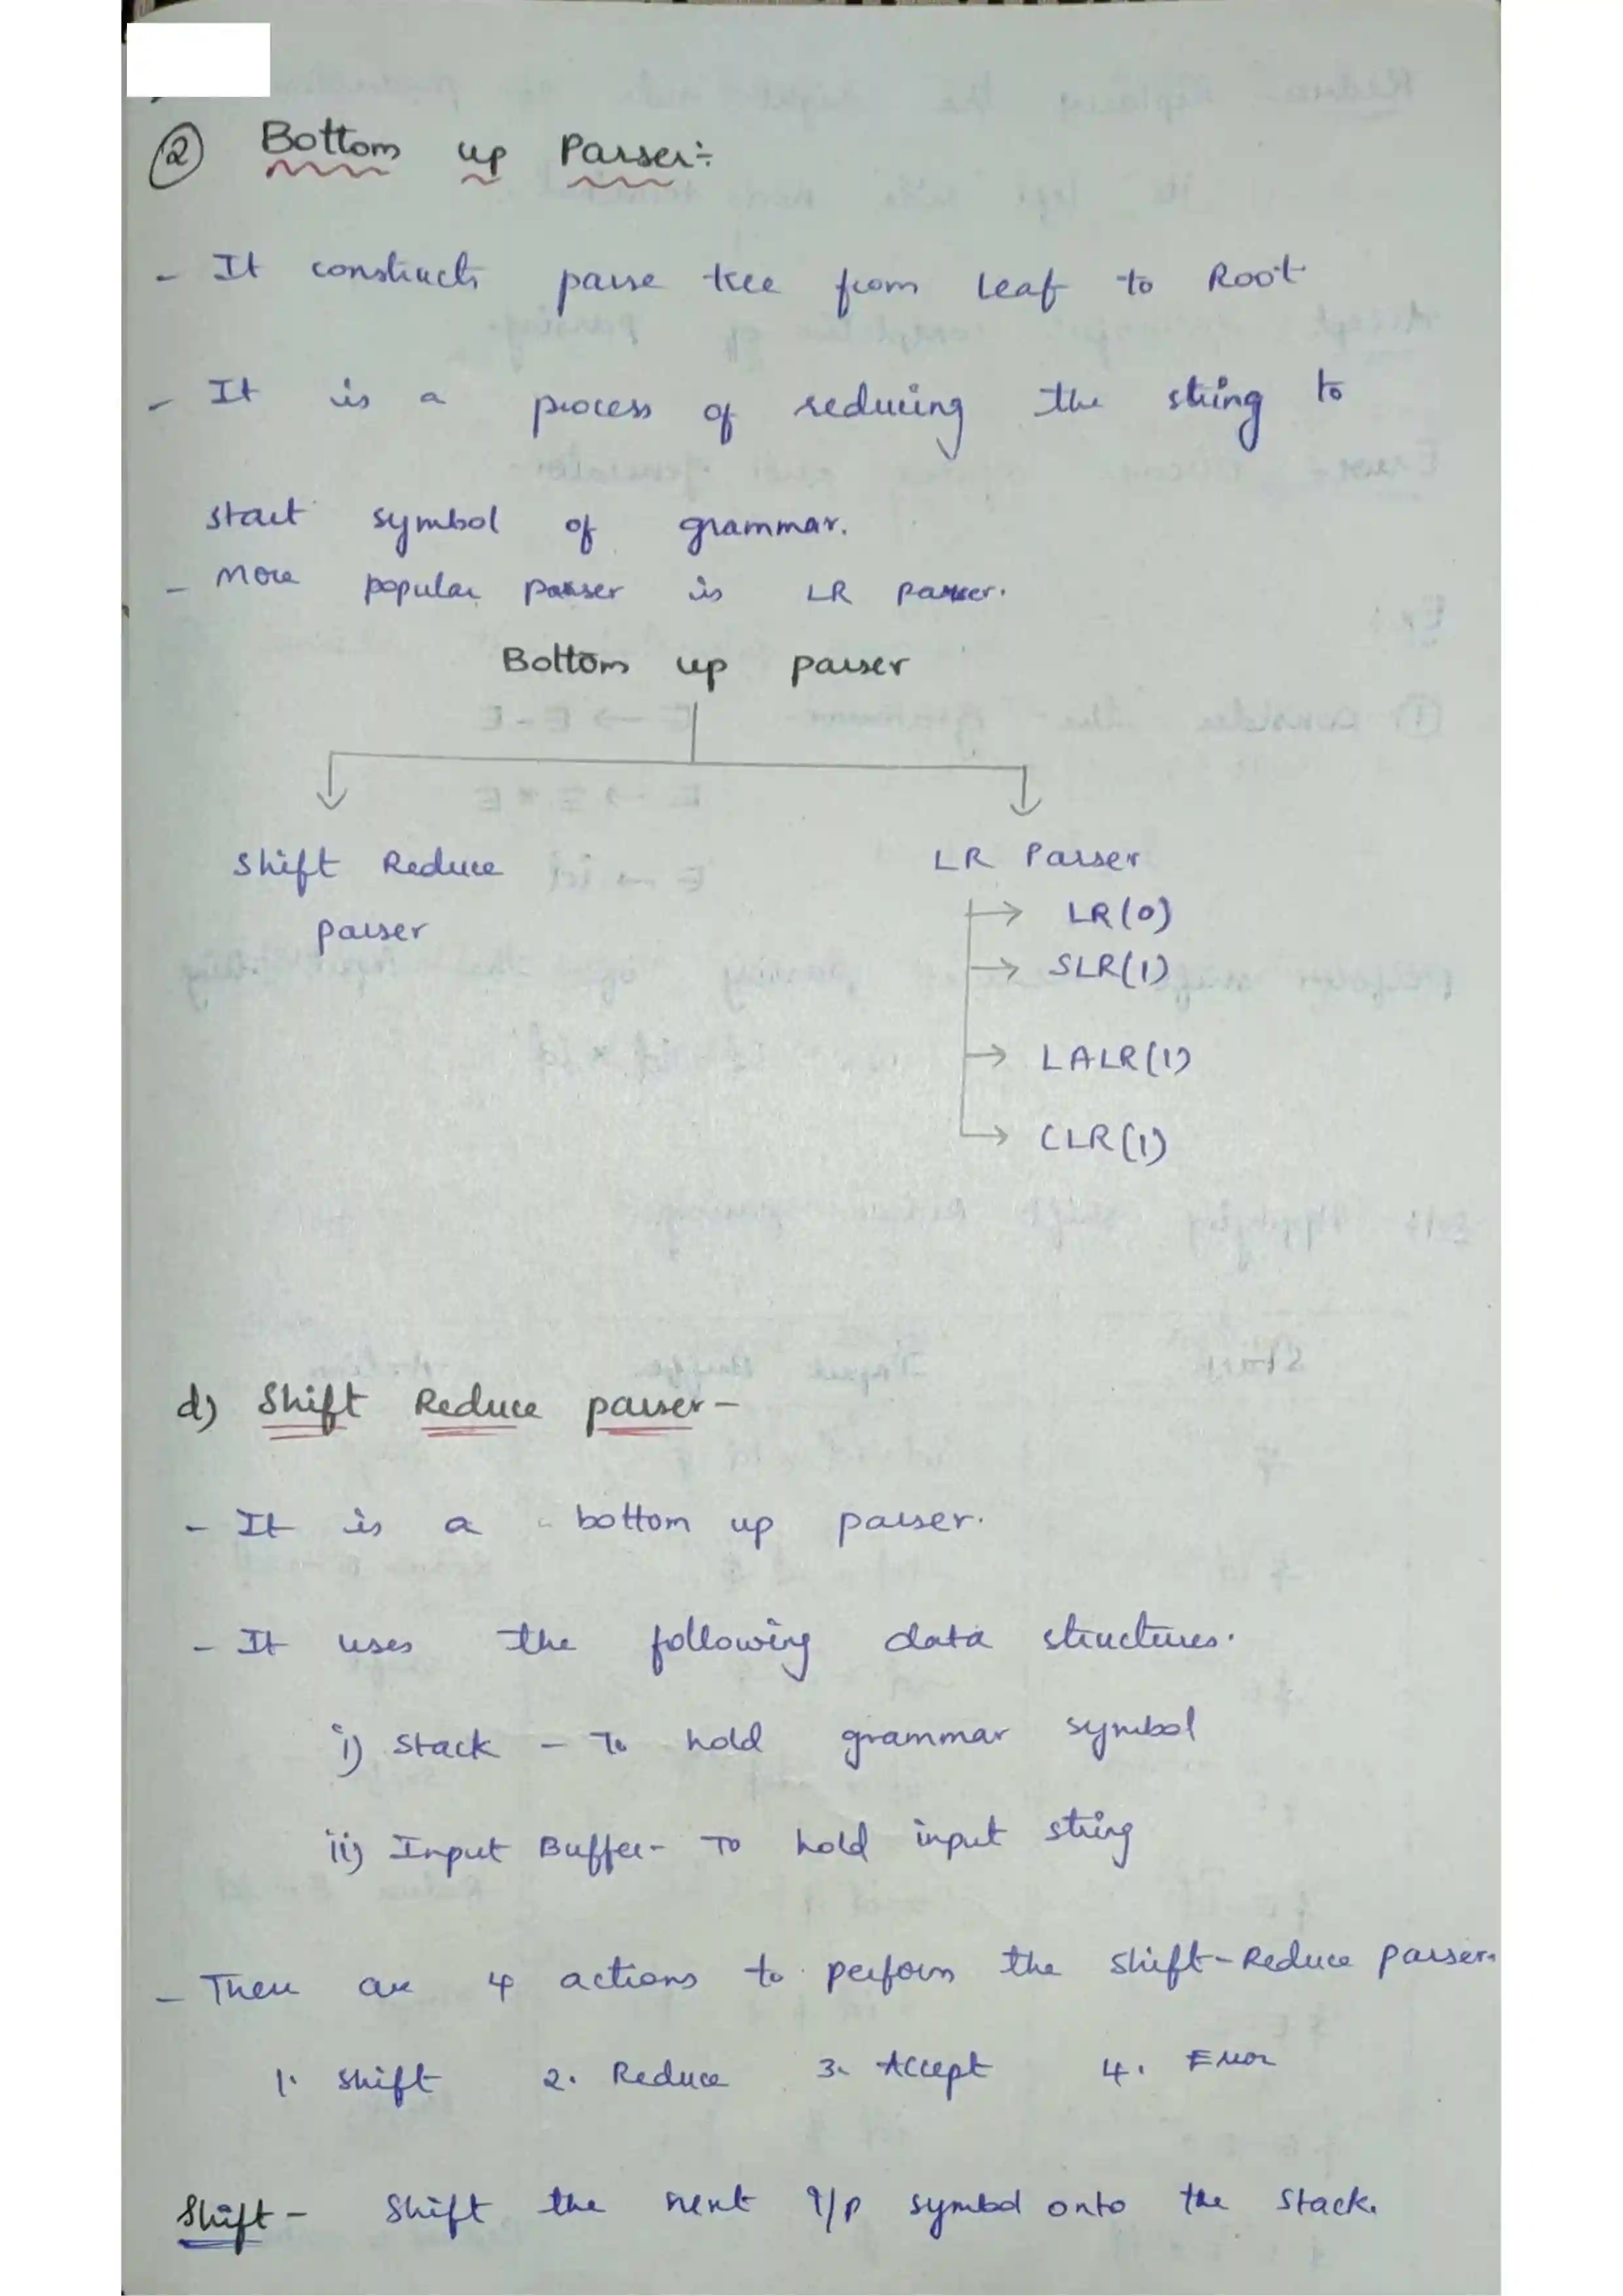 ② Bottom up Parser:-
- It constructs parse tree from Leaf to Root
- It is a process of reducing the string to
start symbol of grammar.
- More popular parser is LR parser.
Bottom up parser
Shift Reduce
parser
LR Parser
→ LR(0)
→ SLR(1)
→ LALR(1)
→ CLR(1)
d) Shift Reduce parser -
- It is a bottom up parser.
- It uses the following data structures.
i) Stack - To hold grammar symbol
ii) Input Buffer - To hold input string
- There are 4 actions to perform the shift-Reduce parser.
1. Shift 2. Reduce 3. Accept 4. Error
Shift - Shift the next i/p symbol onto the stack.